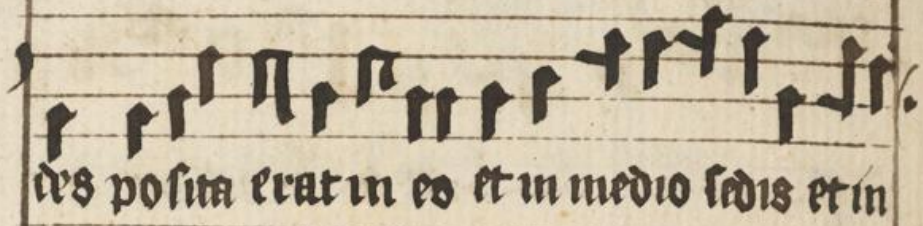 des posita erat in eo et in medio sedis et in